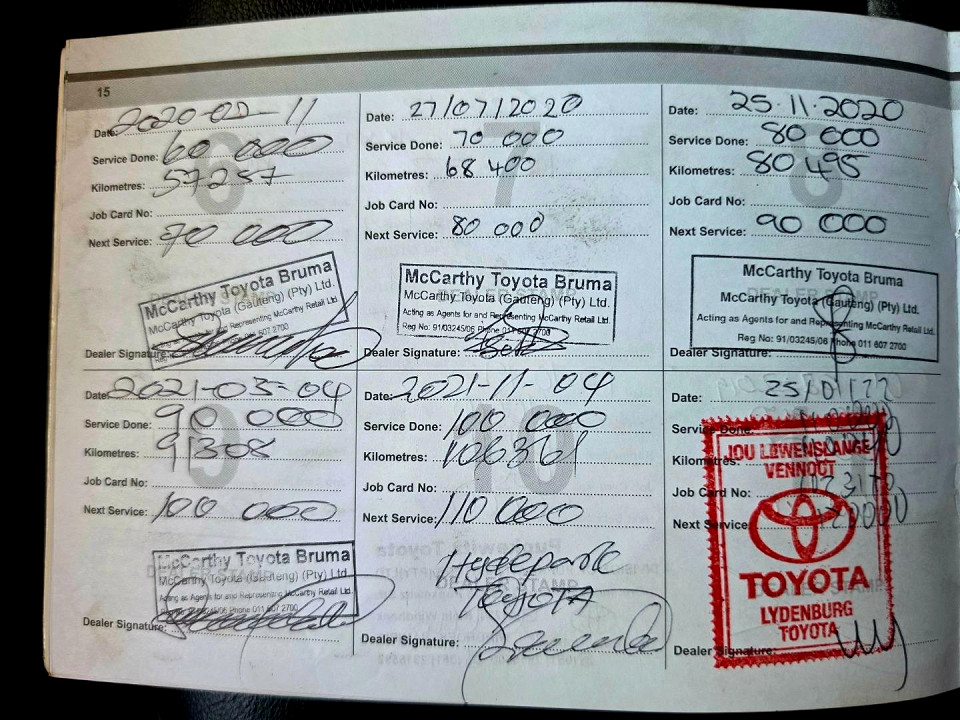 15
Date: 2020-02-11
Service Done: 60 000
Kilometres: 57257
Job Card No:
Next Service: 70 000
McCarthy Toyota Bruma
McCarthy Toyota (Gauteng) (Pty) Ltd.
Acting as Agents for and Representing McCarthy Retail Ltd.
607 2700
Dealer Signature:
Date: 27/07/2020
Service Done: 70 000
Kilometres: 68 400
Job Card No:
Next Service: 80 000
McCarthy Toyota Bruma
McCarthy Toyota (Gauteng) (Pty) Ltd.
Acting as Agents for and Representing McCarthy Retail Ltd.
Reg No: 91/03245/06 Phone 011 607 2700
Dealer Signature:
Date: 25.11.2020
Service Done: 80 000
Kilometres: 80 495
Job Card No:
Next Service: 90 000
McCarthy Toyota Bruma
McCarthy Toyota (Gauteng) (Pty) Ltd.
Acting as Agents for and Representing McCarthy Retail Ltd.
Reg No: 91/03245/06 Phone 011 607 2700
Dealer Signature:
Date: 2021-03-04
Service Done: 90 000
Kilometres: 91308
Job Card No:
Next Service: 100 000
McCarthy Toyota Bruma
McCarthy Toyota (Gauteng) (Pty) Ltd.
Acting as Agents for and Representing McCarthy Retail Ltd.
Reg No: 91/03245/06 Phone 011 607 2700
Dealer Signature:
Date: 2021-11-04
Service Done: 100 000
Kilometres: 106361
Job Card No:
Next Service: 110 000
Hydepark
Toyota
Dealer Signature:
Date: 25/01/22
Service Done:
Kilometres:
Job Card No:
Next Service
JOU LEWENSLANGE
VENNOOT
TOYOTA
LYDENBURG
TOYOTA
Dealer Signature: